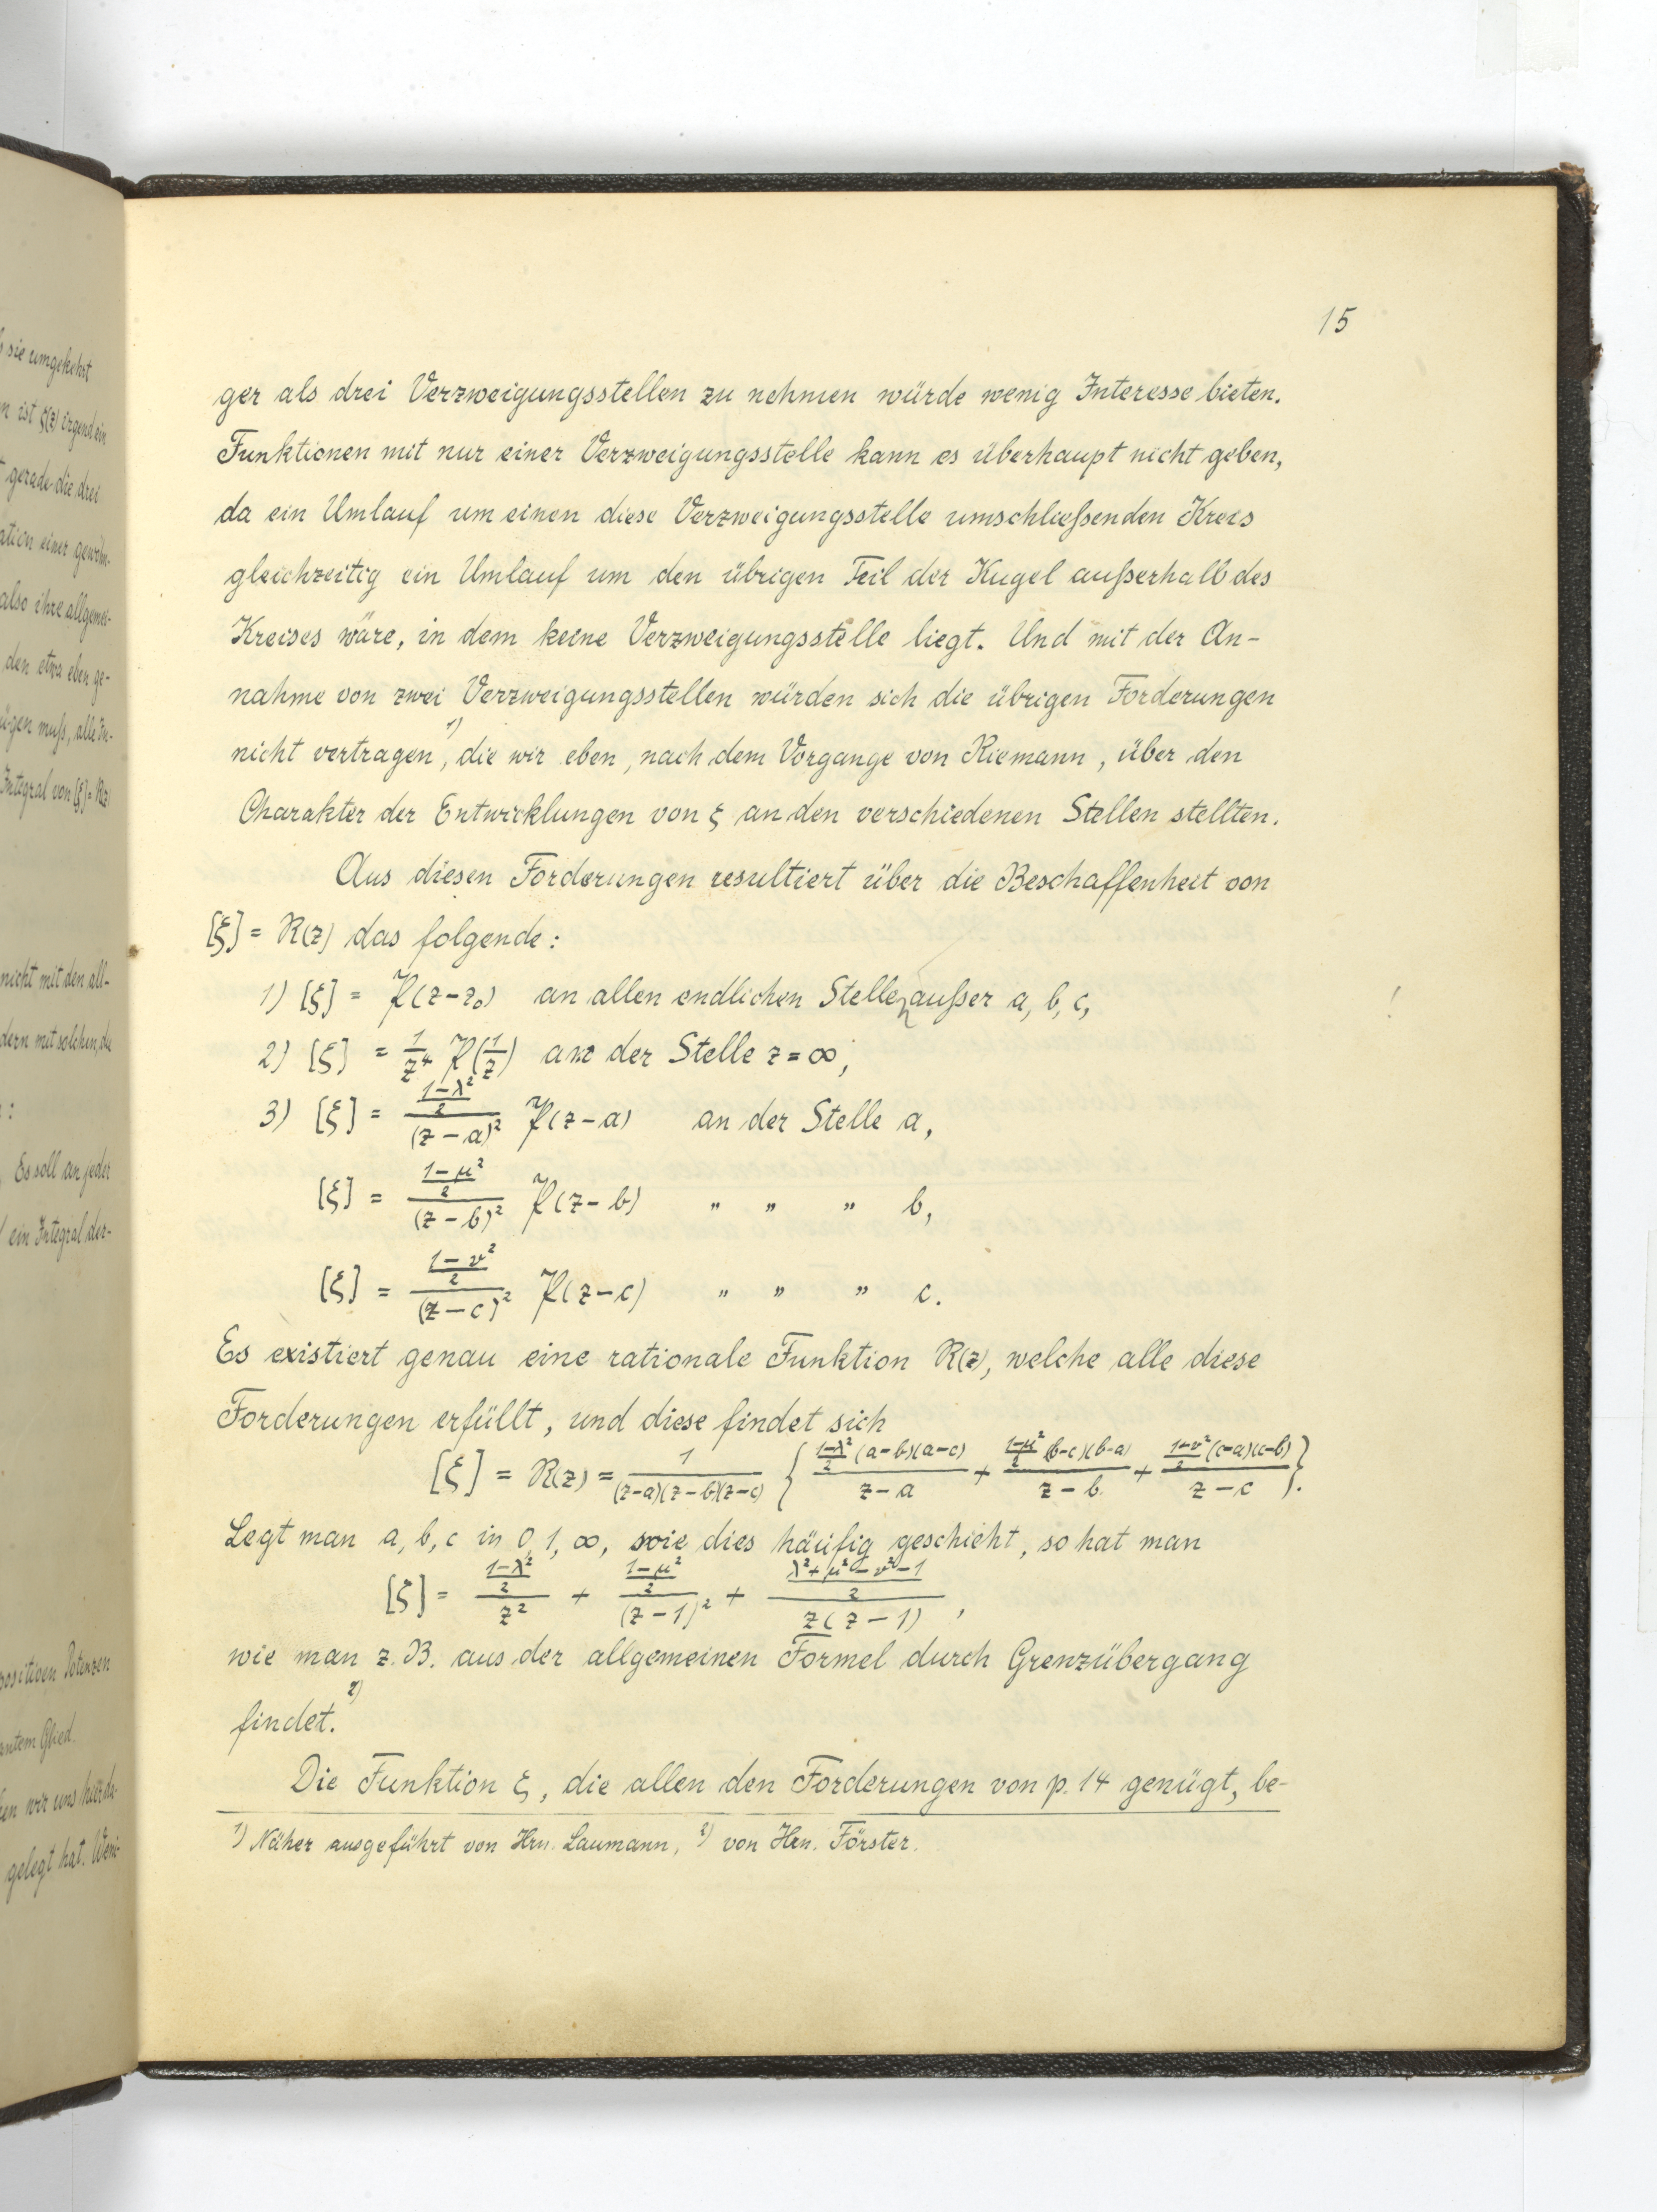 15
ger als drei Verzweigungsstellen zu nehmen würde wenig Interesse bieten.
Funktionen mit nur einer Verzweigungsstelle kann es überhaupt nicht geben,
da ein Umlauf um einen diese Verzweigungsstelle umschließenden Kreis
gleichzeitig ein Umlauf um den übrigen Teil der Kugel außerhalb des
Kreises wäre, in dem keine Verzweigungsstelle liegt. Und mit der An-
nahme von zwei Verzweigungsstellen würden sich die übrigen Forderungen
nicht vertragen ¹⁾, die wir eben, nach dem Vorgange von Riemann, über den
Charakter der Entwicklungen von ξ an den verschiedenen Stellen stellten.
Aus diesen Forderungen resultiert über die Beschaffenheit von
[ξ] = R(z) das folgende:
1) [ξ] = P(z-z₀) an allen endlichen Stellen außer a, b, c,
2) [ξ] = 1/z⁴ P(1/z) an der Stelle z = ∞,
3) [ξ] = ((1-λ²)/2)/(z-a)² P(z-a) an der Stelle a,
[ξ] = ((1-μ²)/2)/(z-b)² P(z-b) " " " b,
[ξ] = ((1-ν²)/2)/(z-c)² P(z-c) " " " c.
Es existiert genau eine rationale Funktion R(z), welche alle diese
Forderungen erfüllt, und diese findet sich
[ξ] = R(z) = 1/((z-a)(z-b)(z-c)) { ((1-λ²)/2 (a-b)(a-c))/(z-a) + ((1-μ²)/2 (b-c)(b-a))/(z-b) + ((1-ν²)/2 (c-a)(c-b))/(z-c) }.
Legt man a, b, c in 0, 1, ∞, wie dies häufig geschieht, so hat man
[ξ] = ((1-λ²)/2)/z² + ((1-μ²)/2)/(z-1)² + ((λ²+μ²-ν²-1)/2)/(z(z-1)),
wie man z. B. aus der allgemeinen Formel durch Grenzübergang
findet. ²⁾
Die Funktion ξ, die allen den Forderungen von p. 14 genügt, be-
¹⁾ Näher ausgeführt von Hrn. Laumann, ²⁾ von Hrn. Förster.